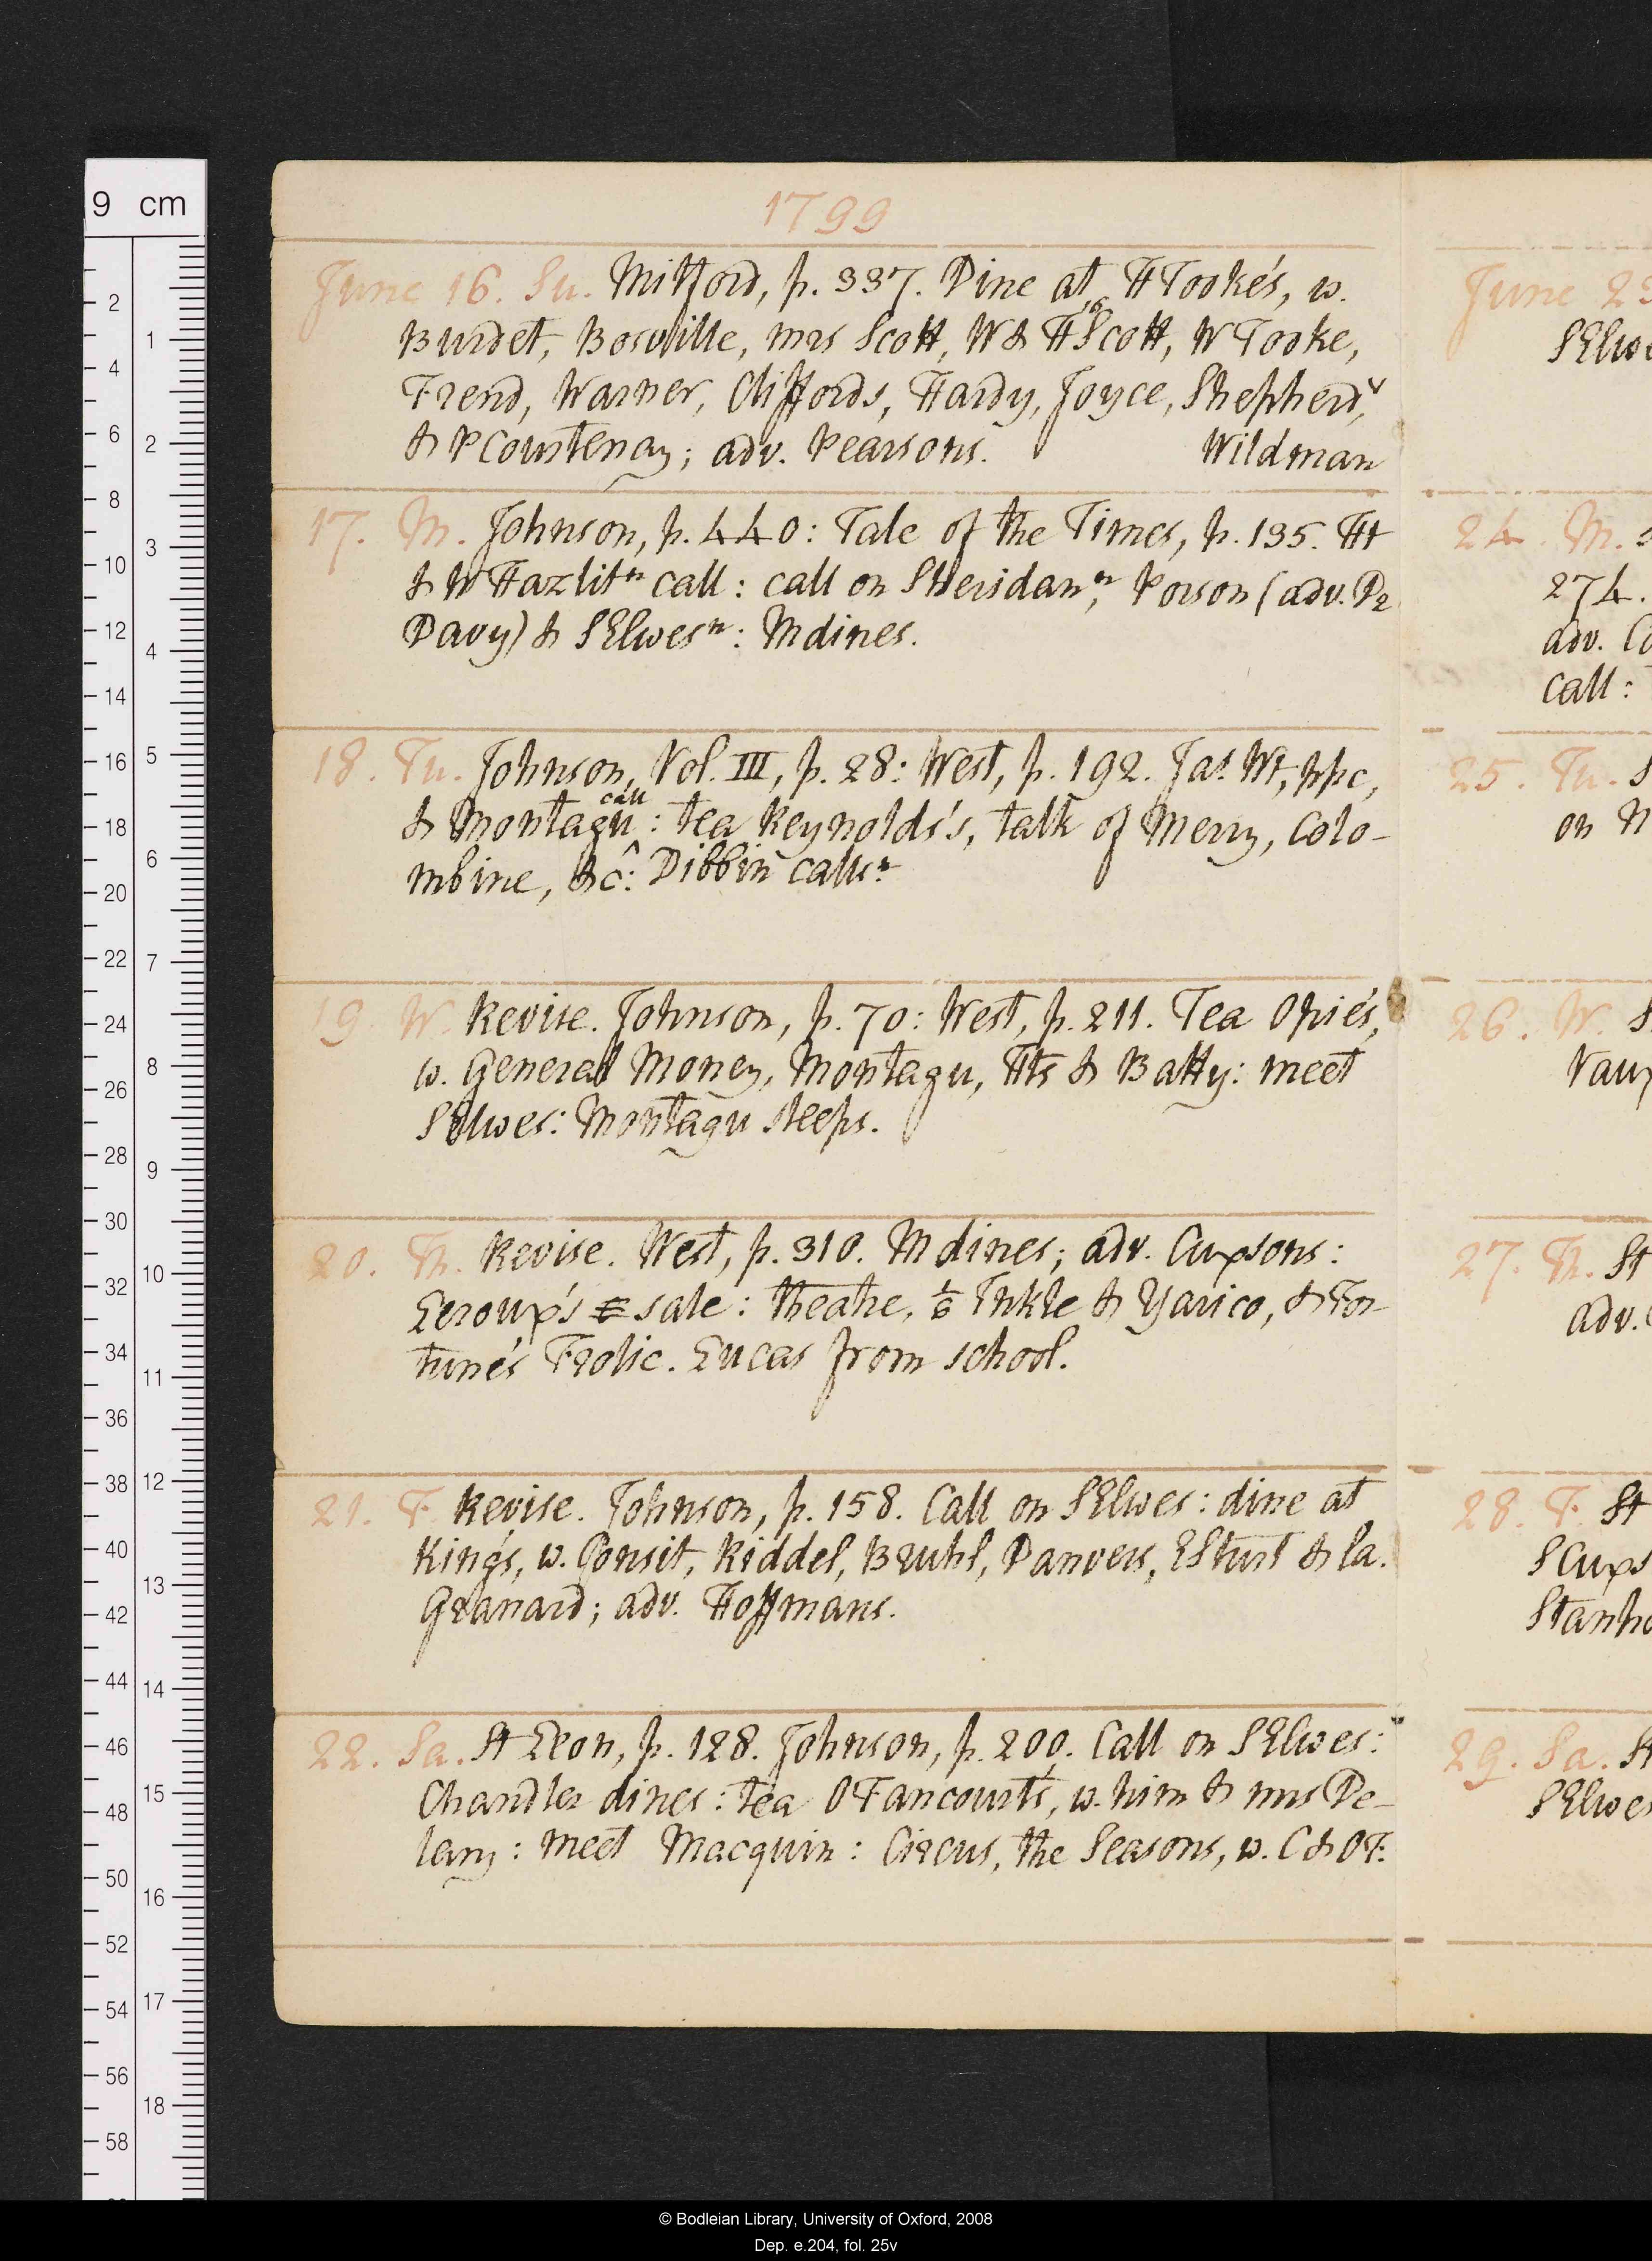 9 cm
1799
June 16. Su. Mitford, p. 337. Dine at HTooke's, w.
Burdet, Bosville, mrs Scott, W & H Scott, W Tooke,
Frend, Warner, Cliffords, Hardy, Joyce, Shepherd,
& PCourtenay; adv. Pearsons. Wildman
17. M. Johnson, p. 440: Tale of the Times, p. 135. Ht
& W Hazlit n call: call on Sheridan n, Porson (adv. Dr
Davy) & SElwes n: M dines.
18. Tu. Johnson, Vol. III, p. 28: West, p. 192. Jas. Wt, ppc,
& Montagu call: tea Reynolds's, talk of Merry, Colo-
mbine, &c: Dibbin calls n
19. W. Revise. Johnson, p. 70: West, p. 211. Tea Opie's,
w. General Money, Montagu, Hts & Batty: meet
SElwes: Montagu sleeps.
20. Th. Revise. West, p. 310. M dines; adv. Cuxsons:
Leroux's sale: theatre, ½ Inkle & Yarico, & For-
tune's Frolic. Lucas from school.
21. F. Revise. Johnson, p. 158. Call on SElwes: dine at
King's, w. Consit, Riddel, Bruhl, Danvers, LSturt & la.
Granard; adv. Hoffmans.
22. Sa. St Leon, p. 128. Johnson, p. 200. Call on SElwes:
Chandler dines: tea OFancourt's, w. him & mrs De-
lany: meet Macquin: Circus, the Seasons, w. C & OF.
June 23
SElwe
24. M.
274.
adv. Co
call:
25. Tu. S
on M
26. W. S
Vaux
27. Th. St
adv.
28. F. St
SCuxs
Stanho
29. Sa. St
SElwes
© Bodleian Library, University of Oxford, 2008
Dep. e.204, fol. 25v